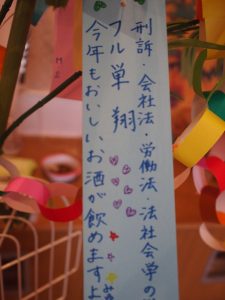 刑訴・会社法・労働法・法社会学の
フル単 翔
今年もおいしいお酒が飲めますよ